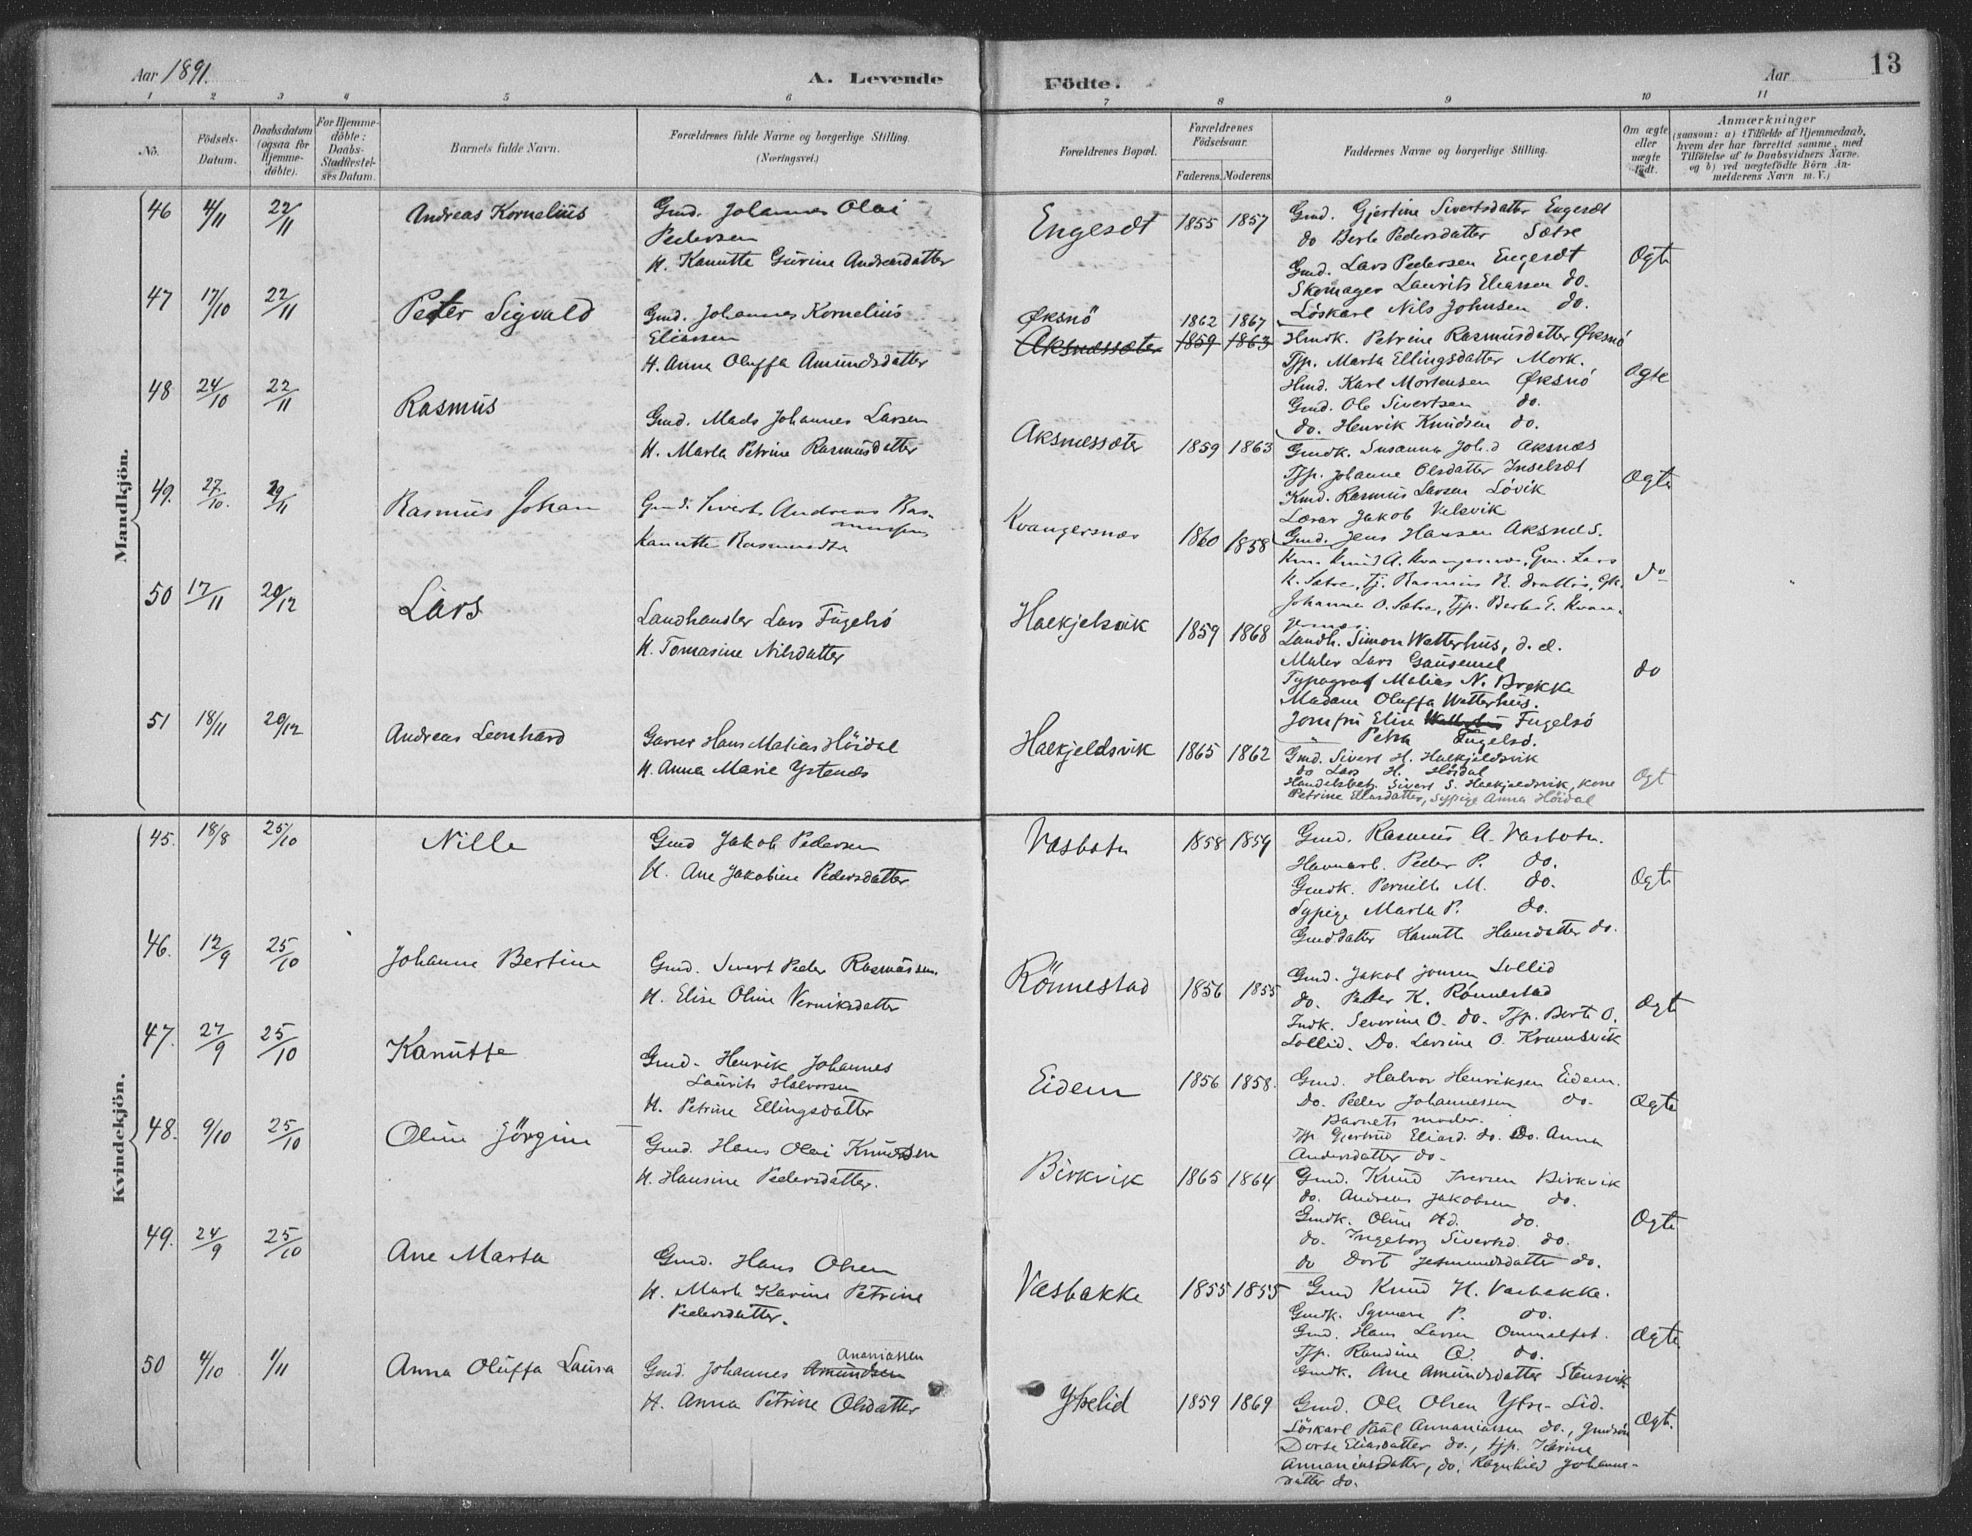 Aar 1891.
A. Levende
Födte.
Aar
13
1 2 3 4 5 6 7 8 9 10 11
No.
Födsels-Datum.
Daabsdatum (ogsaa for Hjemme-döbte).
For Hjemme-döbte: Daabs-Stadfæstel-ses Datum.
Barnets fulde Navn.
Forældrenes fulde Navne og borgerlige Stilling. (Næringsvei.)
Forældrenes Bopæl.
Forældrenes Födselsaar.
Faderens. Moderens.
Faddernes Navne og borgerlige Stilling.
Om ægte eller uægte födt.
Anmærkninger
(saasom: a) i Tilfælde af Hjemmedaab, hvem der har forrettet samme, med Tilföielse af to Daabsvidners Navne, og b) ved uægtefödte Börn An-melderens Navn m. V.)
Mandkjön.
46 4/11 22/11 Andreas Kornelius
Gmd. Johannes Olai
Pedersen
H. Kanutte Gurine Andreasdatter
Engesæt 1855 1857
Gmd. Gjertine Sivertsdatter Engesæt
do Berte Pedersdatter Sætre
Gmd. Lars Pedersen Engesæt
Skomager Laurits Eliassen do.
Löskarl Nils Johnsen do.
Ægte
47 17/10 22/11 Peter Sigvald
Gmd. Johannes Kornelius
Eliassen
H. Anna Oluffa Amundsdatter
Øksnö 1862 1867
Aksnessæter 1859 1863
Hmdk. Petrine Rasmusdatter Øksnö
Tjp. Marta Ellingsdatter Mork.
Hmd. Karl Mortensen Øksnö
Gmd. Ole Sivertsen do.
do. Henrik Knudsen do.
Ægte
48 24/10 22/11 Rasmus
Gmd. Mads Johannes Larsen
H. Marta Petrine Rasmusdatter
Aksnessæter 1859 1863
Gmdk. Susanna Joh.d Aksnæs
Tjp. Johanne Olsdatter Inselsæt
Kmd. Rasmus Larsen Lövik
Lærer Jakob Velsvik
Gmd. Jens Hansen Aksnes.
Ægte
49. 27/10. 29/11 Rasmus Johan
Gmd. Sivert Andreas Ras-
mussen
Kanutte Rasmusdtr
Kvangersnes 1860 1858
Knud A. Kvangersnes, Gm. Lars
K. Sætre, Tj. Rasmus R.
Johanne O. Sætre, Tjp. Berte E. Kvan-
gersnes.
do
50 17/11 20/12 Lars
Landhandler Lars Fugelsö
H. Tomasine Nilsdatter
Halkjelsvik 1859 1868
Landh. Simon Wetterhus, d. e.
Maler Lars Gausemel
Typograf Matias N. Brekke
Madam Oluffa Wetterhus.
Jomfru Elise Wetterhus Fugelsö
" Petra Fugelsö.
do
51 18/11 20/12 Andreas Leonhard
Garver Hans Matias Höidal
H. Anna Marie Ystenes
Halkjeldsvik 1865 1862
Gmd. Sivert H. Halkjeldsvik
do Lars H. Höidal
Handelsbetj. Sivert S. Halkjeldsvik, kone
Petrine Eliasdatter, Sypige Anna Höidal
Ægt
Kvindekjön.
45. 18/8 25/10 Nille
Gmd Jakob Pedersen
H. Ane Jakobine Pedersdatter
Vasbotn 1858 1859
Gmd. Rasmus A. Vasbotn.
Havnarb. Peder P. do.
Gmdk. Pernille M. do.
Sypige Marta P. do.
Gmd.datter Kanutte Hansdatter do.
Ægte
46. 12/9 25/10 Johanne Bertine
Gmd. Sivert Peder Rasmussen.
H. Elise Oline Verniksdatter
Rönnestad 1856 1855
Gmd. Jakob Jonsen Lollid
do. Peder K. Rönnestad
Indk. Severine O. do. Tjp. Berte O.
Lollid. Do. Lavine O. Krumsvik
Ægte
47. 27/9 25/10 Kanutte
Gmd. Henrik Johannes
Laurits Halvorsen
H. Petrine Ellingsdatter
Eidem 1856 1858.
Gmd. Halvor Henriksen Eidem.
Do. Peder Johannessen do.
Barnets moder.
Tjp. Gjertrud Eliasd. do. Do. Anna
Andersdatter do.
Ægte
48. 9/10 25/10 Oline Jörgine
Gmd. Hans Olai Knudsen
H. Hansine Pedersdatter.
Birkvik 1865 1864
Gmd. Knud Iversen Birkvik
do. Andreas Jakobsen do.
Gmdk. Oline Ad. do.
do. Ingeborg Sivertsd. do.
do Dort Jetmundsdatter do.
Ægte
49. 24/9 25/10 Ane Marta
Gmd. Hans Olsen
H. Marte Karine Petrine
Pedersdatter.
Vasbakke 1855 1855
Gmd Knud H. Vasbakke.
Gmdk. Synnøve P. do.
Gmd. Hans Larsen Ommelfot.
Tjp. Randine O. do.
Gmdk. Ane Amundsdatter Stensvik
Ægte
50 4/10 1/11 Anna Oluffa Laura
Gmd. Johannes Amundsen Ananiassen
H. Anna Petrine Olsdatter
Ytrelid 1859 1869
Gmd. Ole Olsen Ytre-Lid.
Löskarl Paul Annaniassen do., gmdsön
Dorte Eliasdatter do., tjp. Karine
Annaniasdatter, do. Ragnhild Johanne-
datter do.
Ægte.